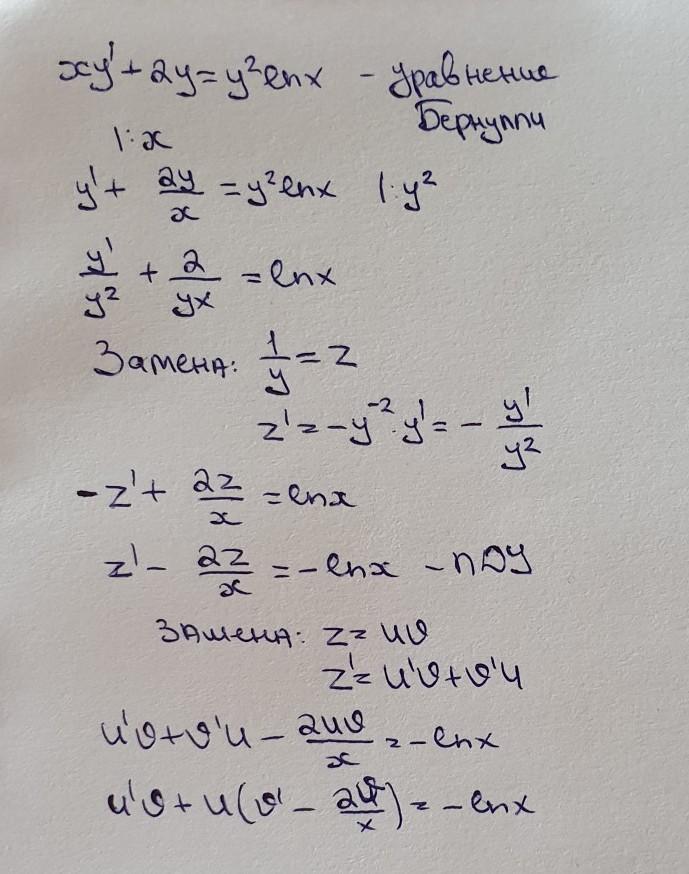 xy' + 2y = y² ln x - уравнение
Бернулли
|:x
y' + 2y/x = y² ln x |:y²
y'/y² + 2/yx = ln x
Замена: 1/y = z
z' = -y⁻²·y' = - y'/y²
-z' + 2z/x = ln x
z' - 2z/x = -ln x - ЛДУ
Замена: z = uv
z' = u'v + v'u
u'v + v'u - 2uv/x = -ln x
u'v + u(v' - 2v/x) = -ln x